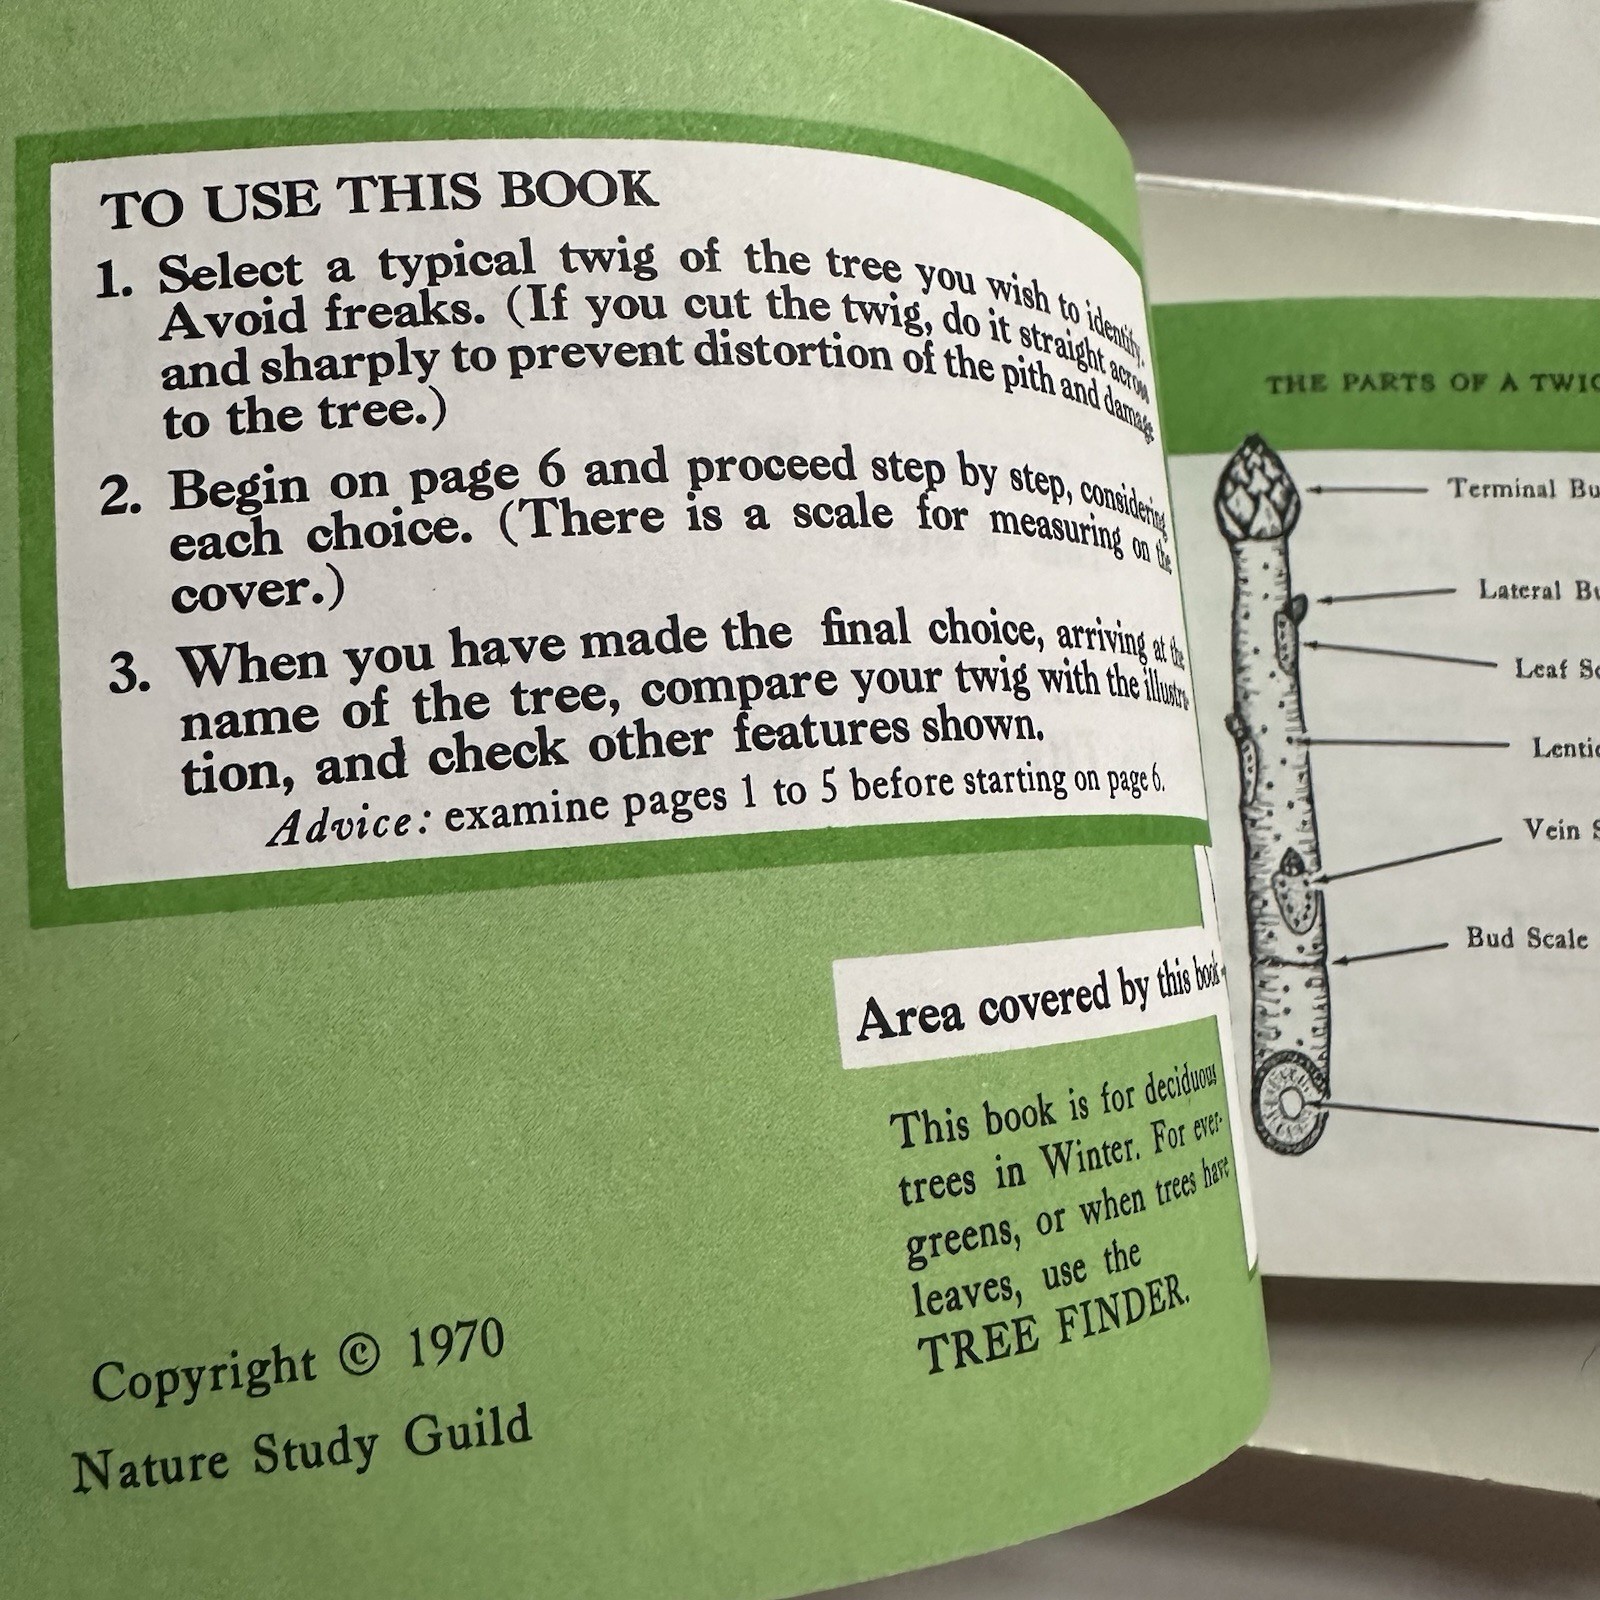 TO USE THIS BOOK
1. Select a typical twig of the tree you wish to identify.
Avoid freaks. (If you cut the twig, do it straight across
and sharply to prevent distortion of the pith and damage
to the tree.)
2. Begin on page 6 and proceed step by step, considering
each choice. (There is a scale for measuring on the
cover.)
3. When you have made the final choice, arriving at the
name of the tree, compare your twig with the illustra-
tion, and check other features shown.
Advice: examine pages 1 to 5 before starting on page 6.
Area covered by this book
This book is for deciduous
trees in Winter. For ever-
greens, or when trees have
leaves, use the
TREE FINDER.
Copyright © 1970
Nature Study Guild
THE PARTS OF A TWIG
Terminal Bu
Lateral Bu
Leaf Sc
Lentic
Vein S
Bud Scale